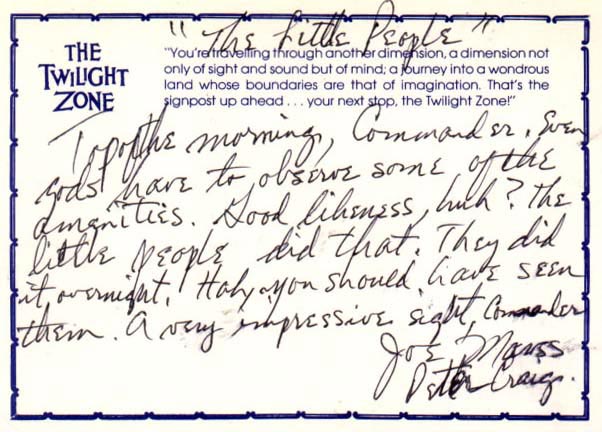 "The Little People"
THE
TWILIGHT
ZONE
"You're travelling through another dimension, a dimension not
only of sight and sound but of mind; a journey into a wondrous
land whose boundaries are that of imagination. That's the
signpost up ahead . . . your next stop, the Twilight Zone!"
Top o the morning, Commander. Even
gods have to observe some of the
amenities. Good likeness, huh? The
little people did that. They did
it overnight. Hah, you should have seen
them. A very impressive sight, Commander
Joe Maross
Peter Craig.